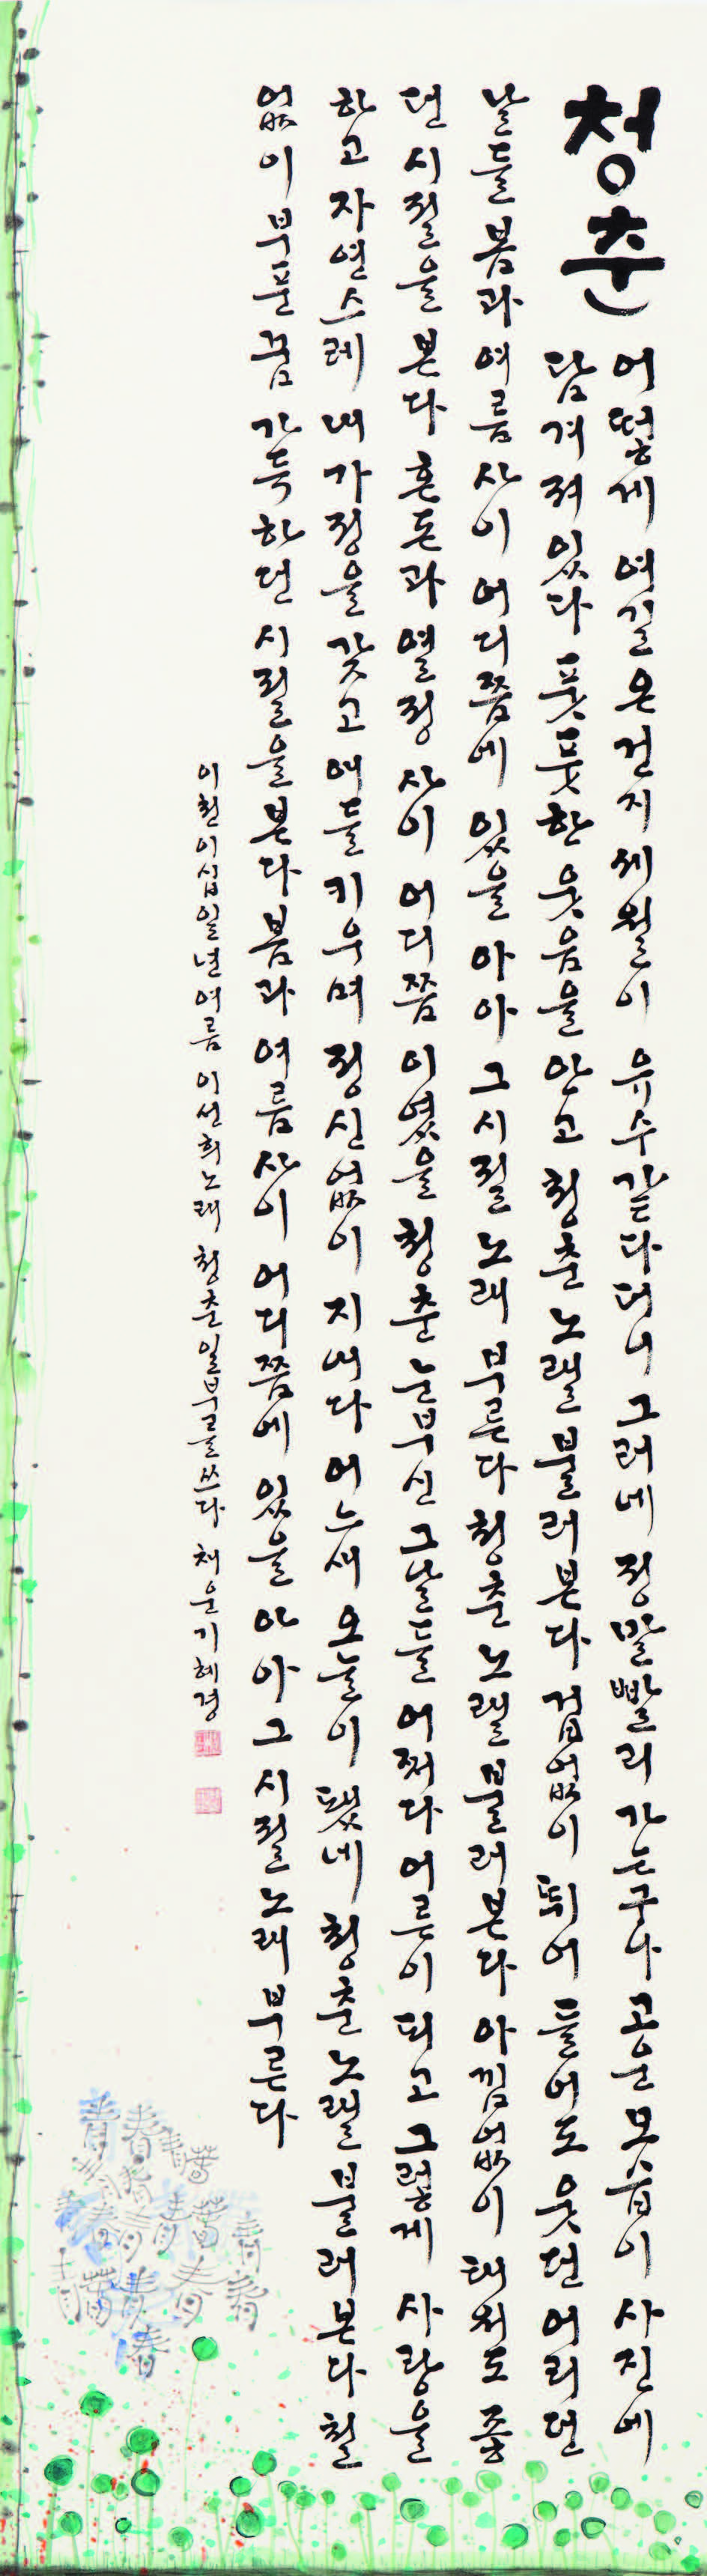 청춘
어떻게 여길 온건지 세월이 유수같다더니 그러네 정말 빨리 가는구나 고운 모습이 사진에
담겨져 있다 풋풋한 웃음을 안고 청춘 노랠 불러본다 겁없이 뛰어 들어도 웃던 어리던
날들 봄과 여름 사이 어디쯤에 있을 아아 그시절 노래 부른다 청춘 노랠 불러본다 아낌없이 태워도 좋
던 시절을 본다 혼돈과 열정 사이 어디쯤 이었을 청춘 눈부신 그날들 어쩌다 어른이 되고 그렇게 사랑을
하고 자연스레 내 가정을 갖고 애들 키우며 정신없이 지내다 어느새 오늘이 됐네 청춘 노랠 불러본다 철
없이 부푼 꿈 가득하던 시절을 본다 봄과 여름 사이 어디쯤에 있을 아아 그 시절 노래 부른다
이천이십일년여름 이선희노래 청춘 일부를쓰다 채운 기혜경